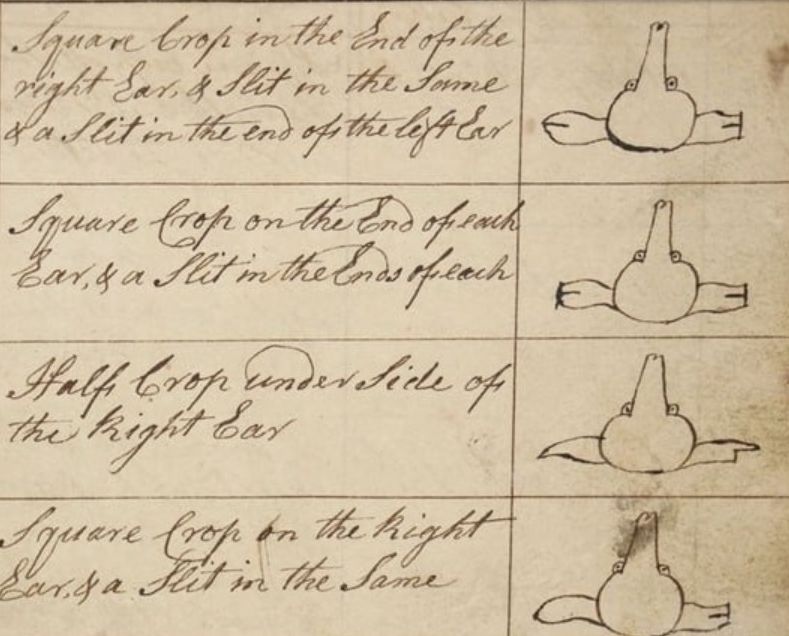 Square Crop in the End of the
right Ear, & Slit in the Same
& a Slit in the end of the left Ear
Square Crop on the End of each
Ear, & a Slit in the Ends of each
Half Crop under Side of
the Right Ear
Square Crop on the Right
Ear, & a Slit in the Same